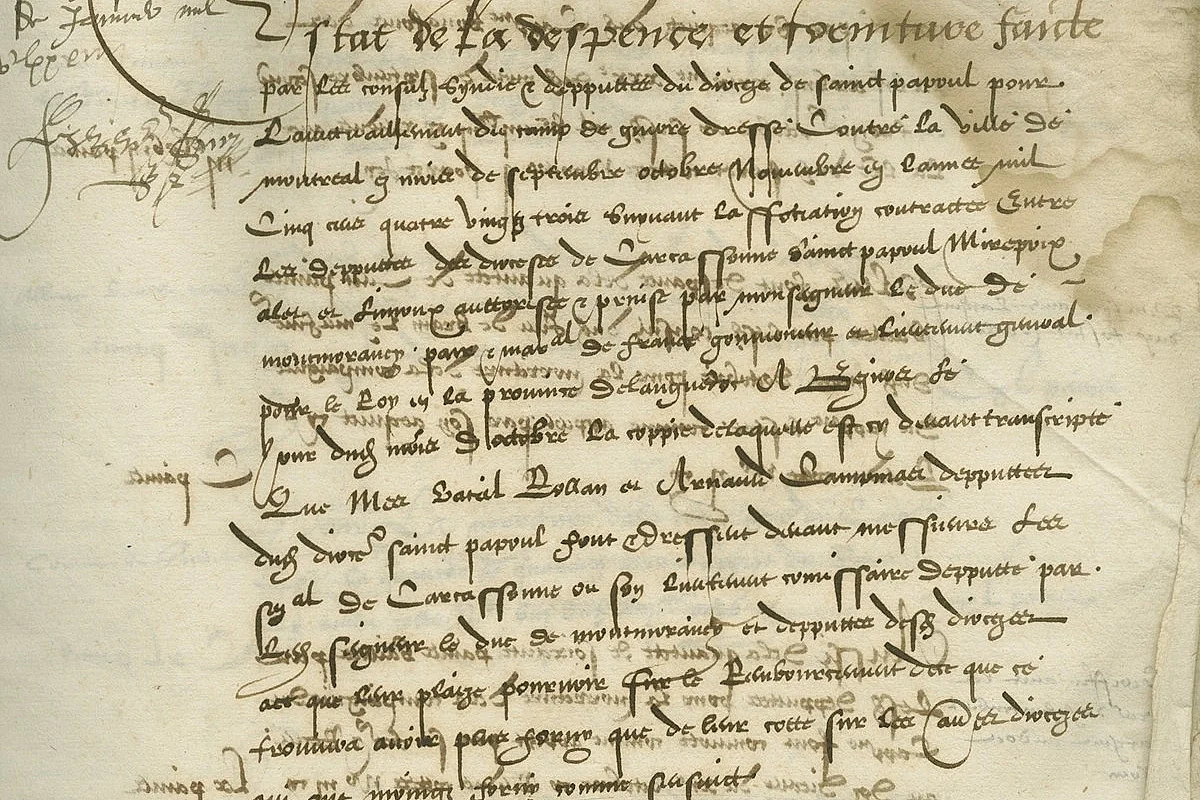 de Janvier mil
Estat de la despence et forniture faicte
par les consulz syndic & depputtes du dioceze de sainct papoul pour
Lavictuaillement du camp de guerre dressé Contre la Ville de
montreal es mois de septembre octobre Novembre en Lannee mil
Cinq cens quatre vingtz trois suyvant la ssotiation contractee Entre
Les depputtes des dioceses de Carcassonne Sainct papoul Mirepoix
alet et Limoux authorisée & prinse par monseigneur le duc de
montmorancy pair & mar.al de france gouverneur et Lieutenant general
pour le Roy en la province delanguedoc A Beziers Le
Jour dud mois d'octobre La coppie delaquelle est cy devant transcripte
Que Mes Vatal Rollan et Arnaud depputtes
dud dioce sainct papoul font & dressent devant messieurs Les
sen.al de Carcassonne ou son Lieutenant comissaire depputté par
Led seigneur le duc de montmorancy et depputtes desd diocezes
aet que leur plaize pourvoir sur le Rembourcement dece que ce
trouvera avoir plus forny que de leur cotte sur les au.es diocezes
qui ont moings forny comme sensuict